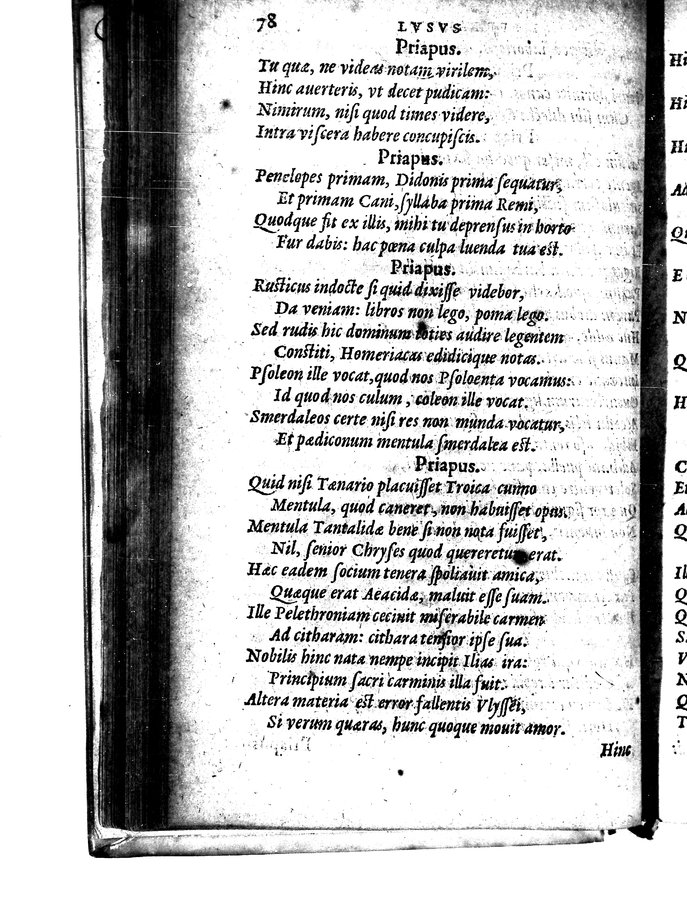 78 LVSVS
Priapus.
Tu quæ, ne videas notam virilem,
Hinc auerteris, vt decet pudicam:
Nimirum, nisi quod times videre,
Intra viscera habere concupiscis.
Priapus.
Penelopes primam, Didonis prima sequatur,
Et primam Cani, syllaba prima Remi,
Quodque fit ex illis, mihi tu deprensus in horto
Fur dabis: hac pœna culpa luenda tua est.
Priapus.
Rusticus indocte si quid dixisse videbor,
Da veniam: libros non lego, poma lego.
Sed rudis hic dominum toties audire legentem
Constiti, Homeriacas edidicique notas.
Psoleon ille vocat, quod nos Psoloenta vocamus:
Id quod nos culum, coleon ille vocat.
Smerdaleos certe nisi res non munda vocatur,
Et pædiconum mentula smerdalea est.
Priapus.
Quid nisi Tænario placuisset Troica cunno
Mentula, quod caneret, non habuisset opus.
Mentula Tantalidæ bene si non nota fuisset,
Nil, senior Chryses quod quereretur erat.
Hæc eadem socium tenera spoliauit amica,
Quæque erat Aeacidæ, maluit esse suam.
Ille Pelethroniam cecinit miserabile carmen
Ad citharam: cithara tensior ipse sua.
Nobilis hinc nata nempe incipit Ilias ira:
Principium sacri carminis illa fuit.
Altera materia est error fallentis Vlyssei,
Si verum quæras, hunc quoque mouit amor.
Hinc